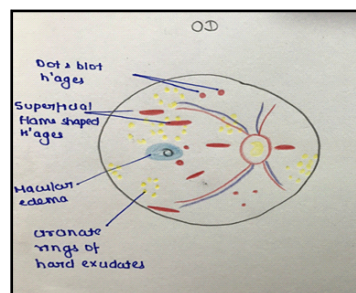 OD
Dot & blot
h'ages
Superficial
flame shaped
h'ages
Macular
edema
circinate
rings of
hard exudates